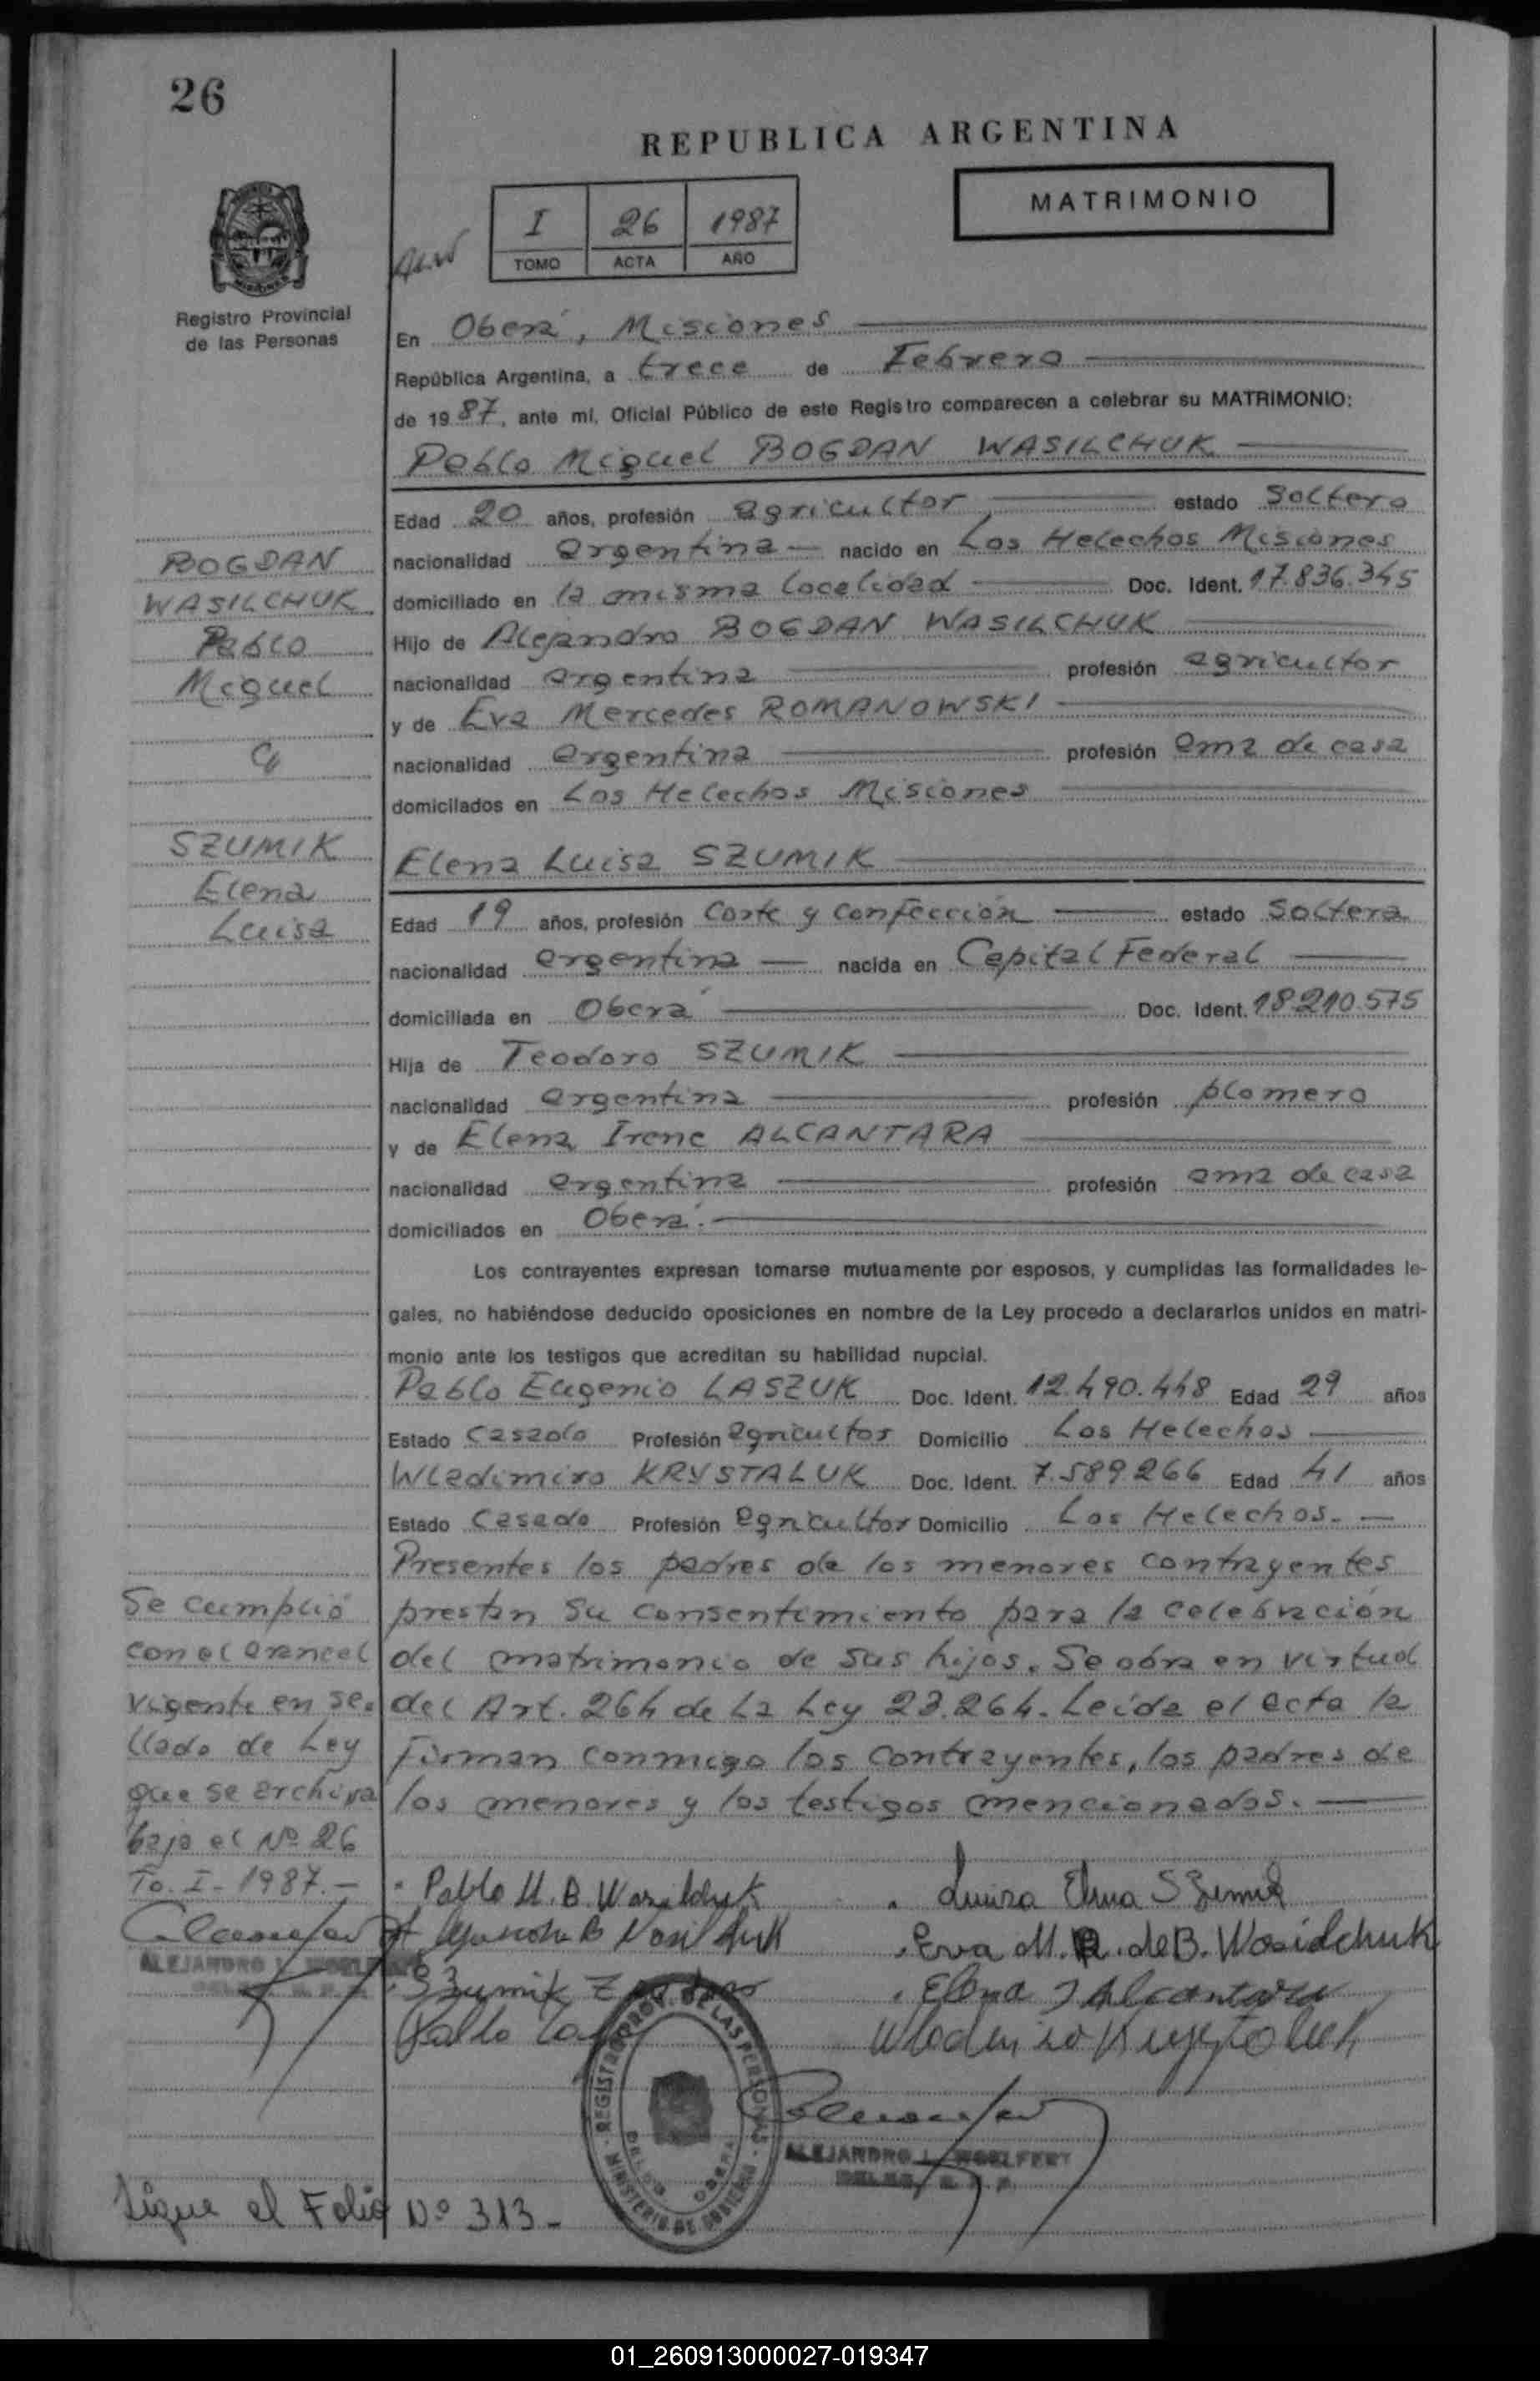 26
REPUBLICA ARGENTINA
MATRIMONIO
I 26 1987
TOMO ACTA AÑO
Registro Provincial
de las Personas
En Oberá, Misiones
República Argentina, a trece de Febrero
de 1987, ante mí, Oficial Público de este Registro comparecen a celebrar su MATRIMONIO:
Pablo Miguel BOGDAN WASILCHUK
Edad 20 años, profesión agricultor estado Soltero
nacionalidad argentina nacido en Los Helechos Misiones
domiciliado en la misma localidad Doc. Ident. 17.836.345
Hijo de Alejandro BOGDAN WASILCHUK
nacionalidad argentina profesión agricultor
y de Eva Mercedes ROMANOWSKI
nacionalidad argentina profesión ama de casa
domicilados en Los Helechos Misiones
BOGDAN
WASILCHUK
Pablo
Miguel
c/
SZUMIK
Elena
Luisa
Elena Luisa SZUMIK
Edad 19 años, profesión Corte y Confección estado Soltera
nacionalidad argentina nacida en Capital Federal
domiciliada en Oberá Doc. Ident. 18.210.575
Hija de Teodoro SZUMIK
nacionalidad argentina profesión plomero
y de Elena Irene ALCANTARA
nacionalidad argentina profesión ama de casa
domiciliados en Oberá.
Los contrayentes expresan tomarse mutuamente por esposos, y cumplidas las formalidades le-
gales, no habiéndose deducido oposiciones en nombre de la Ley procedo a declararlos unidos en matri-
monio ante los testigos que acreditan su habilidad nupcial.
Pablo Eugenio LASZUK Doc. Ident. 12.490.448 Edad 29 años
Estado Casado Profesión agricultor Domicilio Los Helechos
Wladimiro KRYSTALUK Doc. Ident. 7.589.266 Edad 41 años
Estado Casado Profesión agricultor Domicilio Los Helechos.-
Presentes los padres de los menores contrayentes
prestan su consentimiento para la celebración
del matrimonio de sus hijos. Se obra en virtud
del Art. 264 de La Ley 23.264. Leída el acta la
firman conmigo los contrayentes, los padres de
los menores y los testigos mencionados.
Se cumplió
con el arancel
vigente en se-
llado de Ley
que se archiva
bajo el Nº 26
To. I- 1987.-
Pablo M. B. Wasilchuk
Luisa Elena Szumik
Eva M. R. de B. Wasilchuk
Szumik
Elena I Alcantara
Pablo
ALEJANDRO L. WOELFERT
REGISTRO PROV. DE LAS PERSONAS
MINISTERIO DE GOBIERNO
ALEJANDRO L. WOELFERT
Sigue el Folio Nº 313-
01_260913000027-019347